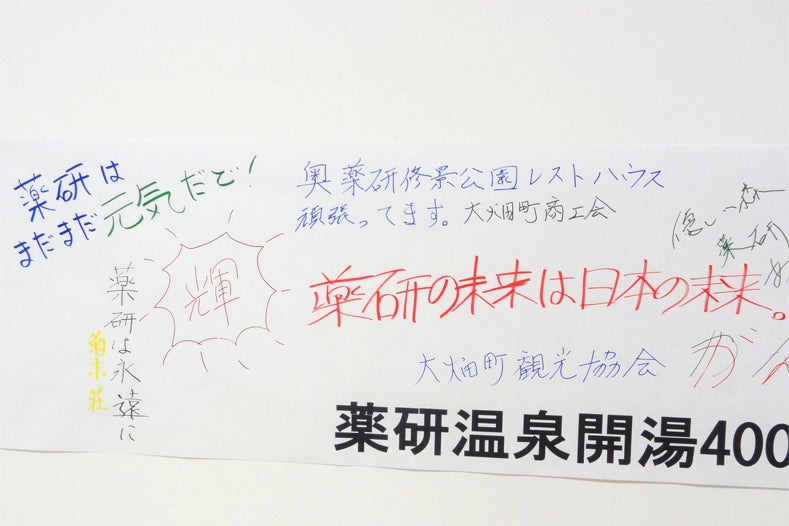 薬研は
まだまだ元気だど!
輝
薬研は永遠に
菊水荘
奥薬研修景公園レストハウス
頑張ってます。大畑町商工会
薬研の未来は日本の未来。
大畑町観光協会
薬研
が
薬研温泉開湯400